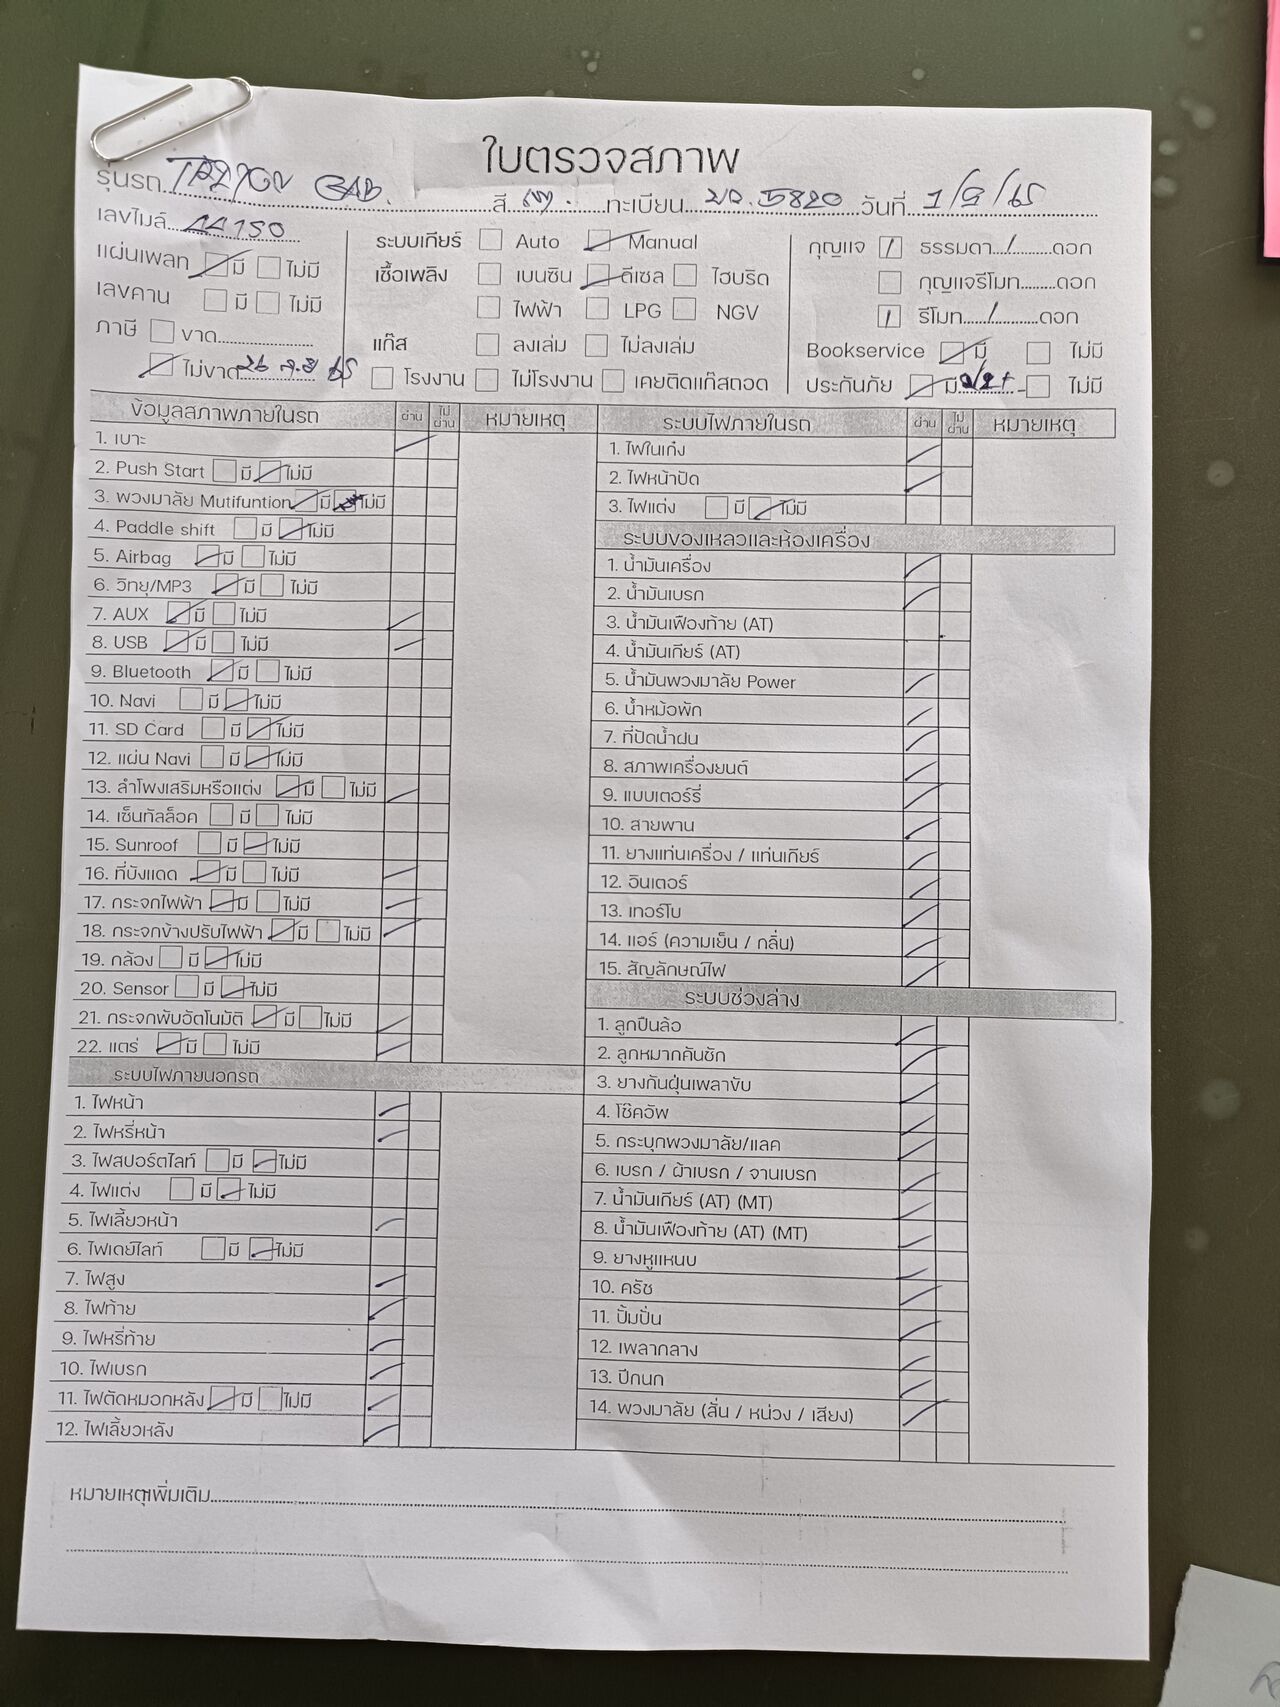 ใบตรวจสภาพ
รุ่นรถ TRITON CAB. สี ทะเบียน 5820 วันที่ 1/5/65
เลขไมล์ 44150 ระบบเกียร์ Auto Manual กุญแจ ธรรมดา / ดอก
แผ่นเพลท มี ไม่มี เชื้อเพลิง เบนซิน ดีเซล ไฮบริด กุญแจรีโมท ดอก
เลขคาน มี ไม่มี ไฟฟ้า LPG NGV รีโมท / ดอก
ภาษี ขาด แก๊ส ลงเล่ม ไม่ลงเล่ม Bookservice มี ไม่มี
ไม่ขาด 26 65 โรงงาน ไม่โรงงาน เคยติดแก๊สถอด ประกันภัย มี 2/2+ ไม่มี
ข้อมูลสภาพภายในรถ ผ่าน ไม่ผ่าน หมายเหตุ
1. เบาะ
2. Push Start มี ไม่มี
3. พวงมาลัย Mutifuntion มี ไม่มี
4. Paddle shift มี ไม่มี
5. Airbag มี ไม่มี
6. วิทยุ/MP3 มี ไม่มี
7. AUX มี ไม่มี
8. USB มี ไม่มี
9. Bluetooth มี ไม่มี
10. Navi มี ไม่มี
11. SD Card มี ไม่มี
12. แผ่น Navi มี ไม่มี
13. ลำโพงเสริมหรือแต่ง มี ไม่มี
14. เซ็นทัลล็อค มี ไม่มี
15. Sunroof มี ไม่มี
16. ที่บังแดด มี ไม่มี
17. กระจกไฟฟ้า มี ไม่มี
18. กระจกข้างปรับไฟฟ้า มี ไม่มี
19. กล้อง มี ไม่มี
20. Sensor มี ไม่มี
21. กระจกพับอัตโนมัติ มี ไม่มี
22. แตร่ มี ไม่มี
ระบบไฟภายนอกรถ
1. ไฟหน้า
2. ไฟหรี่หน้า
3. ไฟสปอร์ตไลท์ มี ไม่มี
4. ไฟแต่ง มี ไม่มี
5. ไฟเลี้ยวหน้า
6. ไฟเดย์ไลท์ มี ไม่มี
7. ไฟสูง
8. ไฟท้าย
9. ไฟหรี่ท้าย
10. ไฟเบรก
11. ไฟตัดหมอกหลัง มี ไม่มี
12. ไฟเลี้ยวหลัง
ระบบไฟภายในรถ ผ่าน ไม่ผ่าน หมายเหตุ
1. ไฟในเก๋ง
2. ไฟหน้าปัด
3. ไฟแต่ง มี ไม่มี
ระบบของเหลวและห้องเครื่อง
1. น้ำมันเครื่อง
2. น้ำมันเบรก
3. น้ำมันเฟืองท้าย (AT)
4. น้ำมันเกียร์ (AT)
5. น้ำมันพวงมาลัย Power
6. น้ำหม้อพัก
7. ที่ปัดน้ำฝน
8. สภาพเครื่องยนต์
9. แบบเตอร์รี่
10. สายพาน
11. ยางแท่นเครื่อง / แท่นเกียร์
12. อินเตอร์
13. เทอร์โบ
14. แอร์ (ความเย็น / กลิ่น)
15. สัญลักษณ์ไฟ
ระบบช่วงล่าง
1. ลูกปืนล้อ
2. ลูกหมากคันชัก
3. ยางกันฝุ่นเพลาขับ
4. โช๊คอัพ
5. กระบุกพวงมาลัย/แลค
6. เบรก / ผ้าเบรก / จานเบรก
7. น้ำมันเกียร์ (AT) (MT)
8. น้ำมันเฟืองท้าย (AT) (MT)
9. ยางหูแหนบ
10. ครัช
11. ปั้มปั่น
12. เพลากลาง
13. ปีกนก
14. พวงมาลัย (สั่น / หน่วง / เสียง)
หมายเหตุเพิ่มเติม